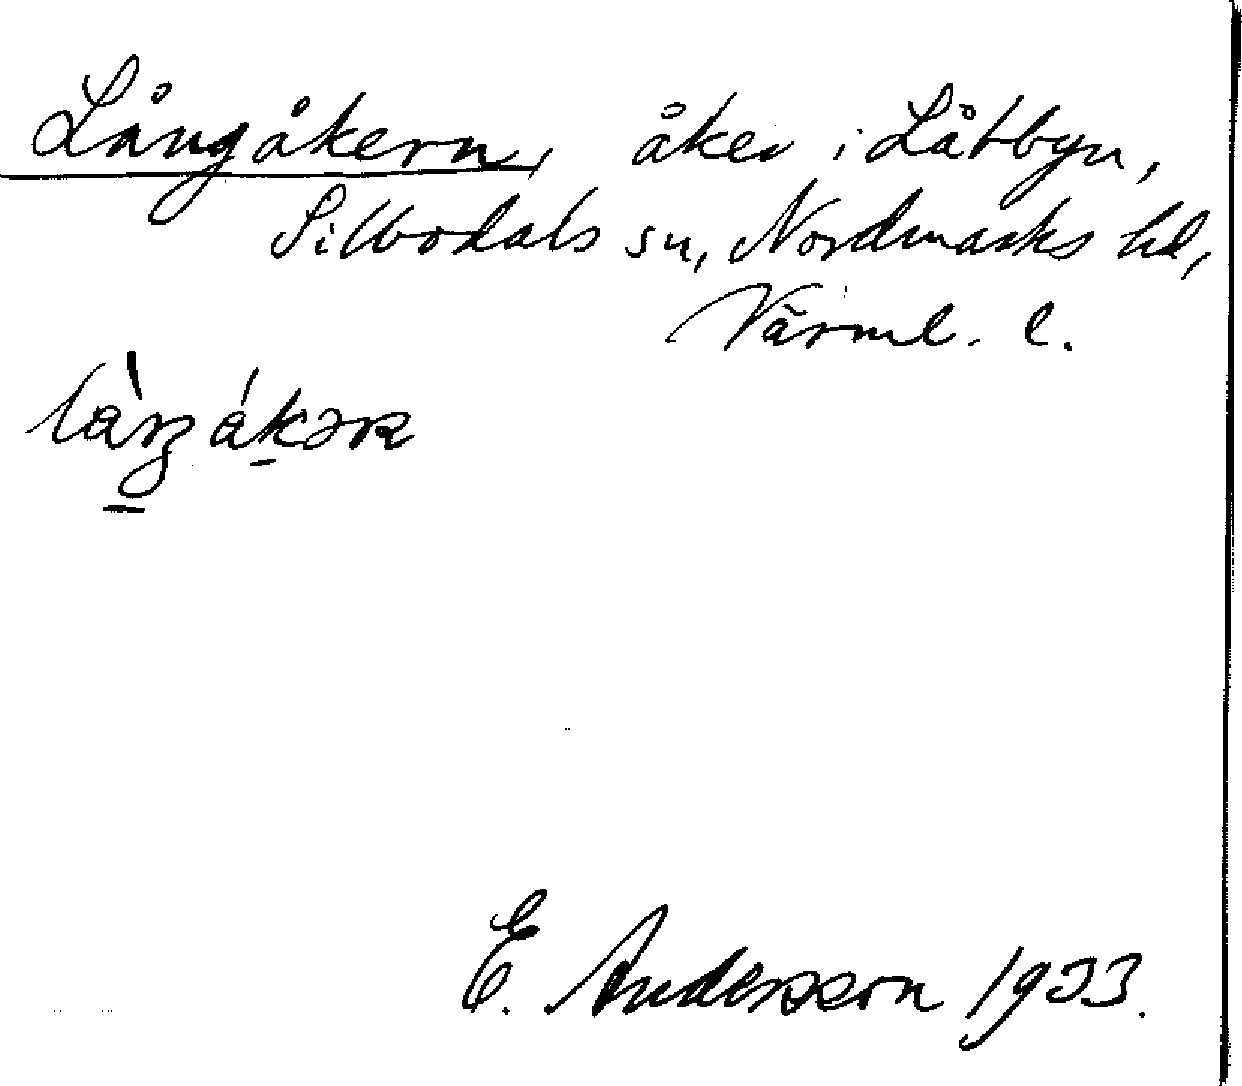 Långåkern, åker i Låtbyn,
Silbodals sn, Nordmarks hd,
Värml. l.
E. Andersson 1933.